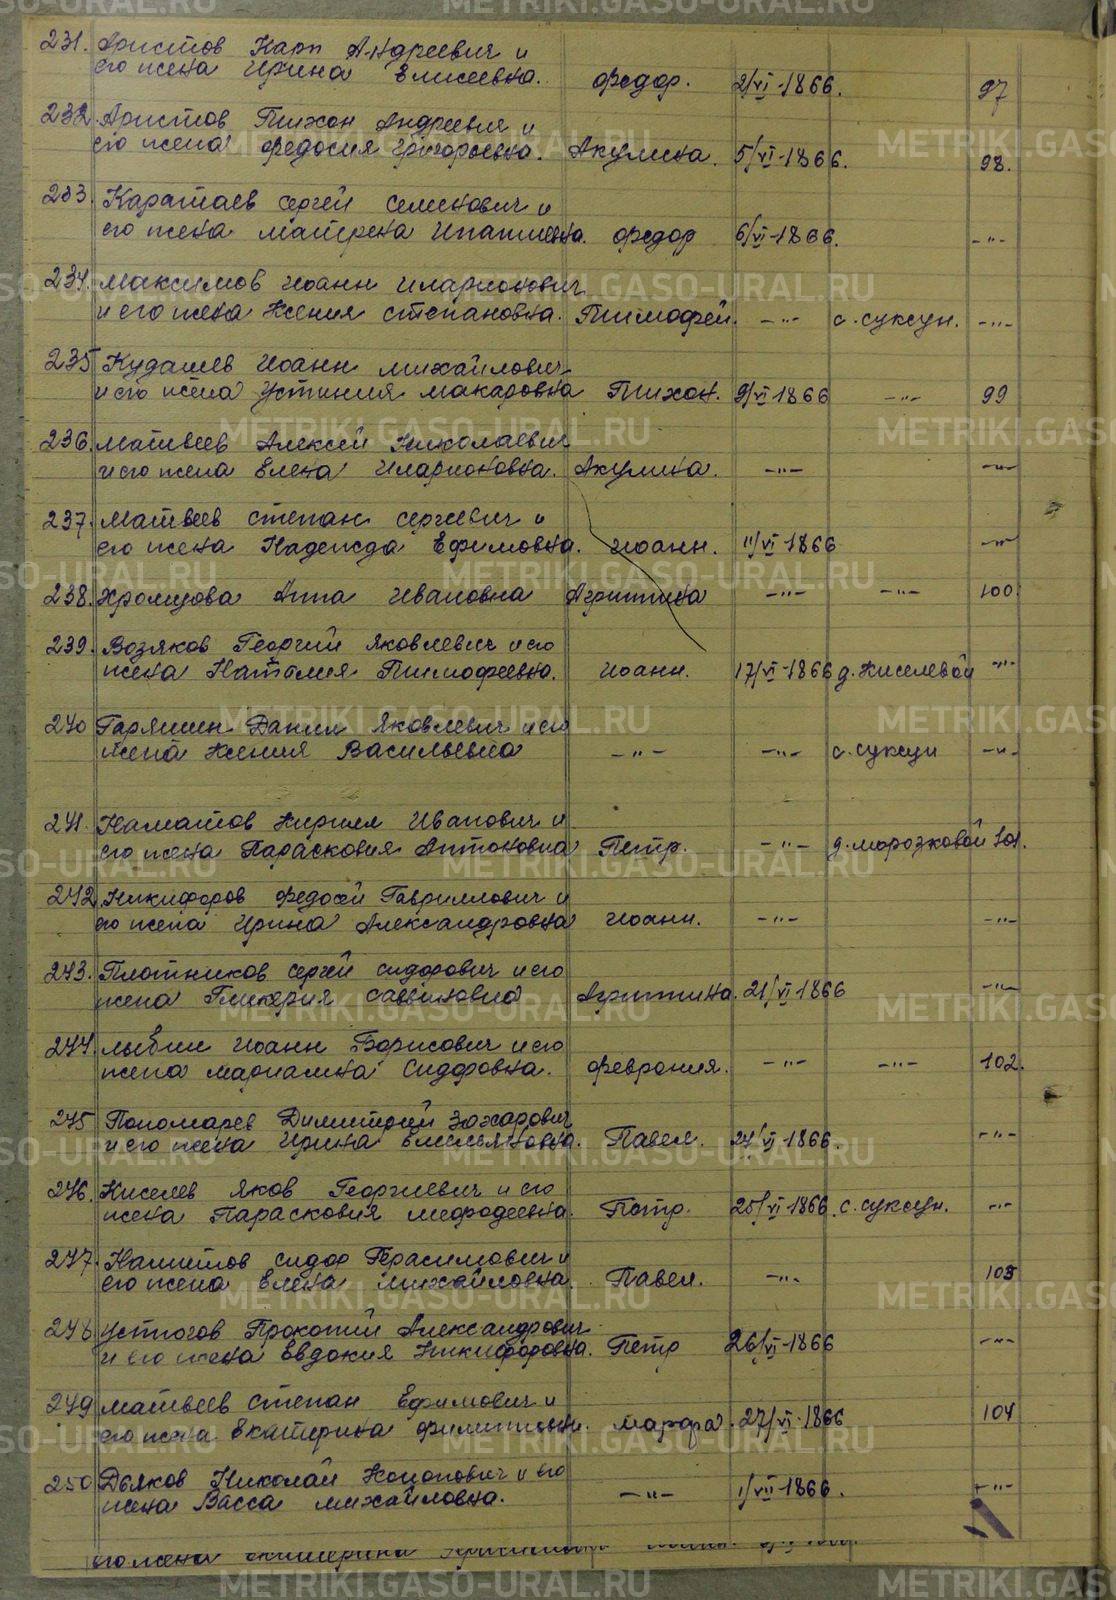 231. Аристов Карп Андреевич и
его жена Ирина Елисеевна. Федор. 2/VI-1866. 97
232. Аристов Тихон Андреевич и
его жена Федосия Григорьевна. Акулина. 5/VI-1866. 98.
233. Каратаев Сергей Семенович и
его жена Матрена Ипатиевна. Федор 6/VI-1866. -"-
234. Максимов Иоанн Иларионович
и его жена Ксения Степановна. Тимофей. -"- с. Суксун. -"-
235 Кудашев Иоанн Михайлович
и его жена Устиния Макаровна Тихон. 9/VI-1866 -"- 99
236. Матвеев Алексей Николаевич
и его жена Елена Иларионовна. Акулина. -"- -"-
237. Матвеев Степан Сергеевич и
его жена Надежда Ефимовна. Иоанн. 11/VI-1866 -"-
238. Хромцова Анна Ивановна Агриппина -"- -"- 100
239. Возяков Георгий Яковлевич и его
жена Наталия Тимофеевна. Иоанн. 17/VI-1866 д. Киселевой -"-
240 Гаряшин Данил Яковлевич и его
жена Ксения Васильевна -"- -"- с. Суксун -"-
241. Каматов Кирилл Иванович и
его жена Парасковия Антоновна Петр. -"- д. Морозковой 101.
242 Никифоров Федосей Гавриллович и
его жена Ирина Александровна Иоанн. -"- -"-
243. Плотников Сергей Сидорович и его
жена Гликерия Саввиновна Агриппина. 21/VI-1866 -"-
244. Иоанн Борисович и его
жена Мариамна Сидоровна. Феврония. -"- -"- 102.
245 Пономарев Димитрий Захарович
и его жена Ирина Емельяновна. Павел. 24/VI-1866. -"-
246. Киселев Яков Георгиевич и его
жена Парасковия Мефодеевна. Петр. 25/VI-1866. с. Суксун. -"-
247. Сидор Герасимович и
его жена Елена Михайловна. Павел. -"- 103
248 Устюгов Прокопий Александрович
и его жена Евдокия Никифоровна. Петр 26/VI-1866 -"-
249 Матвеев Степан Ефимович и
его жена Екатерина Филипповна. Марфа. 27/VI-1866 104
250 Дьяков Николай Кононович и его
жена Васса Михайловна. -"- 1/VII-1866. -"-
его жена
METRIKI.GASO-URAL.RU